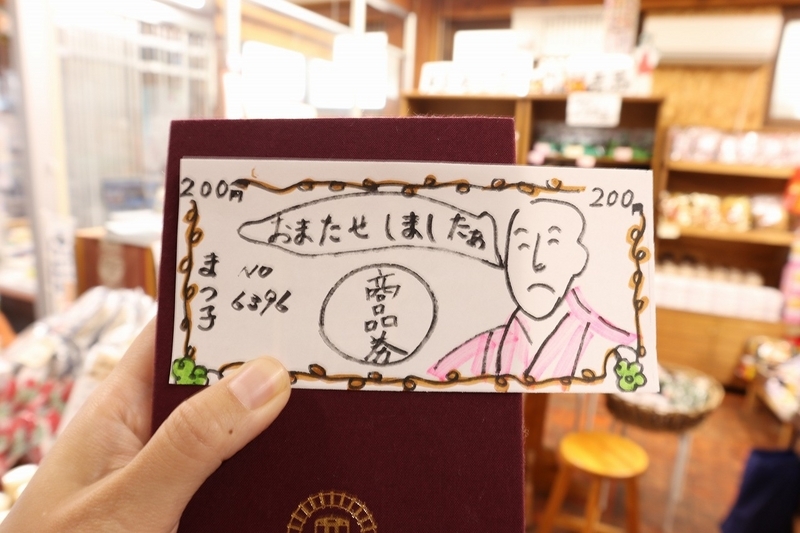 200円
200円
おまたせしましたぁ
まつ子
NO
6396
商品券